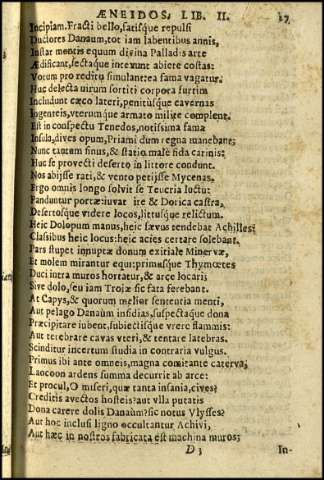 ÆNEIDOS, LIB. II. 27
Incipiam. Fracti bello, fatisque repulsi
Ductores Danaum, tot iam labentibus annis,
Instar montis equum divina Palladis arte
Ædificant, sectaque intexunt abiete costas:
Votum pro reditu simulant: ea fama vagatur.
Huc delecta virum sortiti corpora furtim
Includunt cæco lateri, penitusque cavernas
Ingenteis, uterumque armato milite complent.
Est in conspectu Tenedos, notissima fama
Insula, dives opum, Priami dum regna manebant:
Nunc tantum sinus, & statio male fida carinis:
Huc se provecti deserto in littore condunt.
Nos abiisse rati, & vento petiisse Mycenas.
Ergo omnis longo solvit se Teucria luctu:
Panduntur portæ: iuvat ire & Dorica castra,
Desertosque videre locos, littusque relictum.
Heic Dolopum manus, heic sævus tendebat Achilles:
Classibus heic locus: heic acies certare solebant.
Pars stupet innuptæ donum exitiale Minervæ,
Et molem mirantur equi: primusque Thymœtes
Duci intra muros hortatur, & arce locari:
Sive dolo, seu iam Trojæ sic fata ferebant.
At Capys, & quorum melior sententia menti,
Aut pelago Danaum insidias, suspectaque dona
Præcipitare iubent, subiectisque urere flammis:
Aut terebrare cavas uteri, & tentare latebras.
Scinditur incertum studia in contraria vulgus.
Primus ibi ante omneis, magna comitante caterva,
Laocoon ardens summa decurrit ab arce:
Et procul, O miseri, quæ tanta insania, cives?
Creditis avectos hosteis? aut ulla putatis
Dona carere dolis Danaum? sic notus Ulysses?
Aut hoc inclusi ligno occultantur Achivi,
Aut hæc in nostros fabricata est machina muros;
D 3 In-